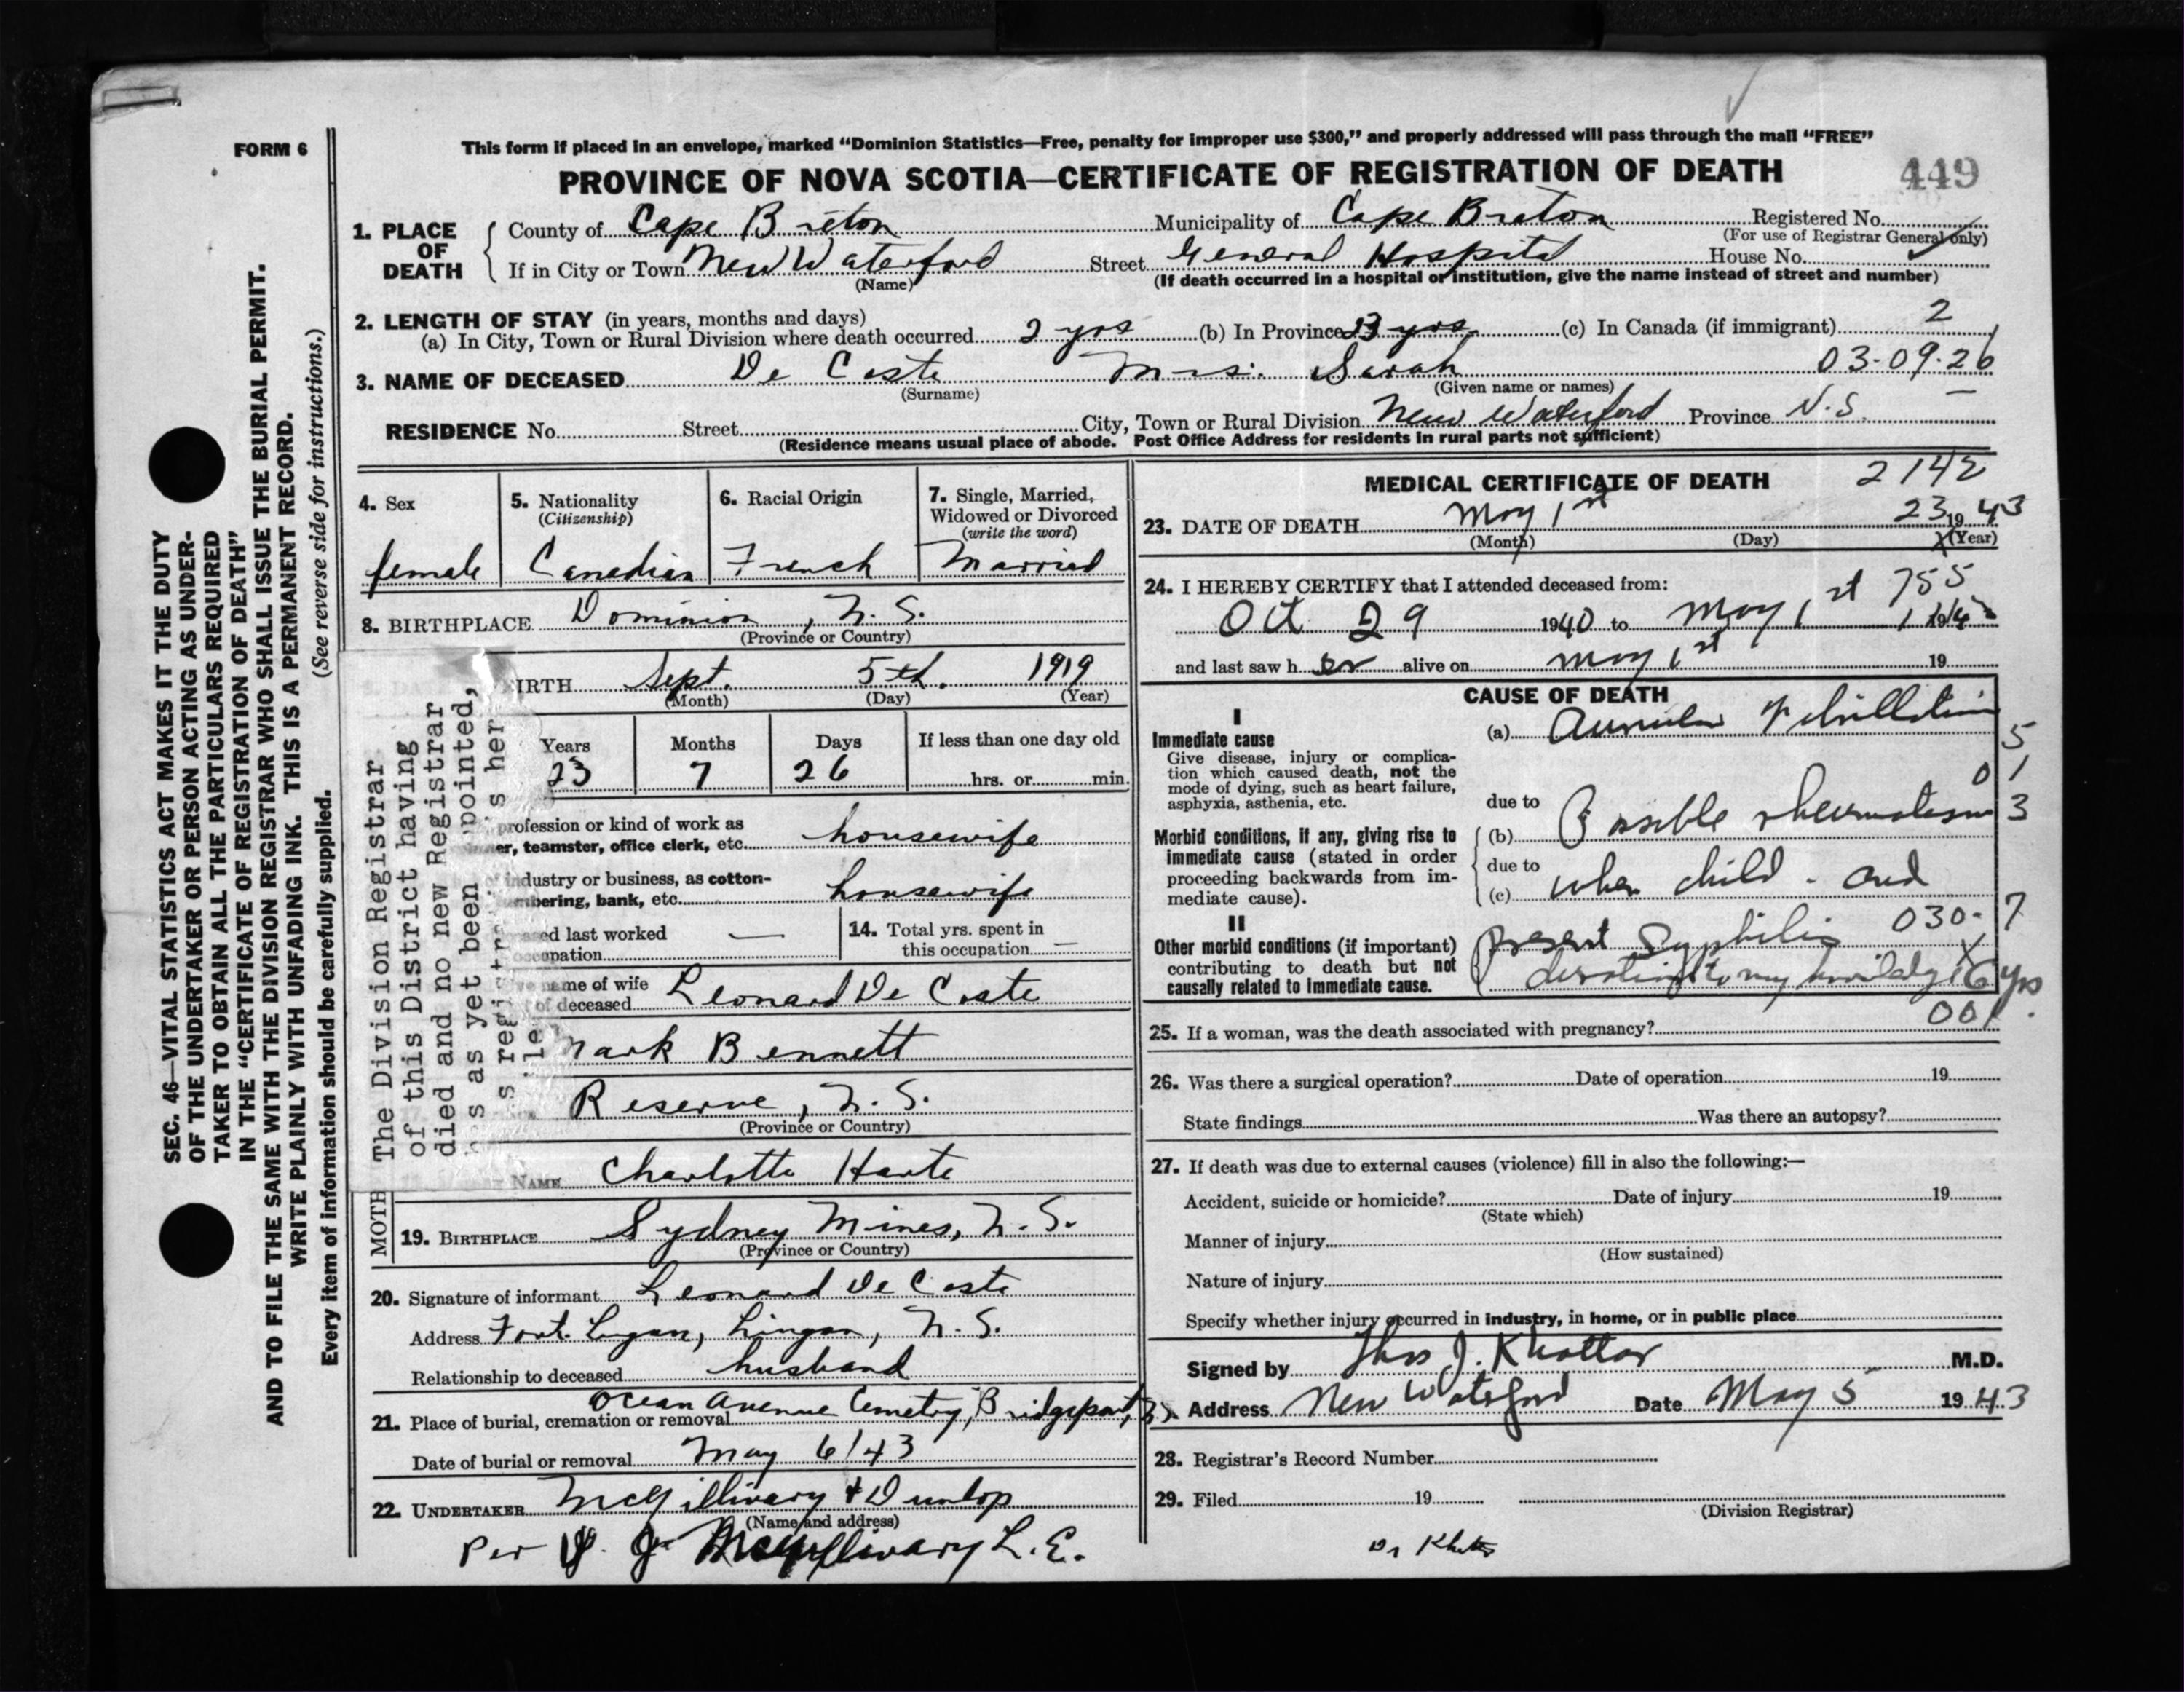 FORM 6
This form if placed in an envelope, marked "Dominion Statistics—Free, penalty for improper use $300," and properly addressed will pass through the mail "FREE"
PROVINCE OF NOVA SCOTIA—CERTIFICATE OF REGISTRATION OF DEATH
449
SEC. 46—VITAL STATISTICS ACT MAKES IT THE DUTY
OF THE UNDERTAKER OR PERSON ACTING AS UNDER-
TAKER TO OBTAIN ALL THE PARTICULARS REQUIRED
IN THE "CERTIFICATE OF REGISTRATION OF DEATH"
AND TO FILE THE SAME WITH THE DIVISION REGISTRAR WHO SHALL ISSUE THE BURIAL PERMIT.
WRITE PLAINLY WITH UNFADING INK. THIS IS A PERMANENT RECORD.
Every item of information should be carefully supplied. (See reverse side for instructions.)
1. PLACE OF DEATH
County of Cape Breton Municipality of Cape Breton Registered No.
(For use of Registrar General only)
If in City or Town New Waterford Street General Hospital House No.
(Name) (If death occurred in a hospital or institution, give the name instead of street and number)
2. LENGTH OF STAY (in years, months and days)
(a) In City, Town or Rural Division where death occurred 2 yrs (b) In Province 23 yrs (c) In Canada (if immigrant) 2
03-09-26
3. NAME OF DECEASED De Coste Mrs. Sarah
(Surname) (Given name or names)
RESIDENCE No. Street City, Town or Rural Division New Waterford Province N.S.
(Residence means usual place of abode. Post Office Address for residents in rural parts not sufficient)
4. Sex
female
5. Nationality
(Citizenship)
Canadian
6. Racial Origin
French
7. Single, Married,
Widowed or Divorced
(write the word)
Married
8. BIRTHPLACE Dominion, N.S.
(Province or Country)
The Division Registrar
of this District having
died and no new Registrar
as yet been pointed,
s her
BIRTH Sept. 5th. 1919
(Month) (Day) (Year)
Years 23
Months 7
Days 26
If less than one day old
hrs. or min.
profession or kind of work as
teamster, office clerk, etc. housewife
industry or business, as cotton-
bank, etc. housewife
last worked —
14. Total yrs. spent in
this occupation —
name of wife
of deceased Leonard De Coste
Mark Bennett
Reserve, N.S.
(Province or Country)
NAME Charlotte Harte
MOTH
19. BIRTHPLACE Sydney Mines, N.S.
(Province or Country)
20. Signature of informant Leonard De Coste
Address Lingan, N.S.
Relationship to deceased husband
21. Place of burial, cremation or removal Ocean Avenue Cemetry, Bridgeport, N.S.
Date of burial or removal May 6/43
22. UNDERTAKER McGillivary & Dunlop
(Name and address)
Per J. McGillivary L.E.
MEDICAL CERTIFICATE OF DEATH
2142
23. DATE OF DEATH May 1st 23 1943
(Month) (Day) (Year)
24. I HEREBY CERTIFY that I attended deceased from:
755
Oct 29 1940 to May 1st
and last saw her alive on May 1st 19
CAUSE OF DEATH
I
Immediate cause
Give disease, injury or complica-
tion which caused death, not the
mode of dying, such as heart failure,
asphyxia, asthenia, etc.
(a) Auricular
due to
Morbid conditions, if any, giving rise to
immediate cause (stated in order
proceeding backwards from im-
mediate cause).
(b) Possible rheumatism
due to
(c) when child. and
5
0 1
3
II
Other morbid conditions (if important)
contributing to death but not
causally related to immediate cause.
present Syphilis 030- 7
to my 6 yrs
001
25. If a woman, was the death associated with pregnancy?
26. Was there a surgical operation? Date of operation 19
State findings Was there an autopsy?
27. If death was due to external causes (violence) fill in also the following:—
Accident, suicide or homicide? Date of injury 19
(State which)
Manner of injury
(How sustained)
Nature of injury
Specify whether injury occurred in industry, in home, or in public place
Signed by Thos J. Khattar M.D.
Address New Waterford Date May 5 1943
28. Registrar's Record Number
29. Filed 19
(Division Registrar)
Dr Khattar